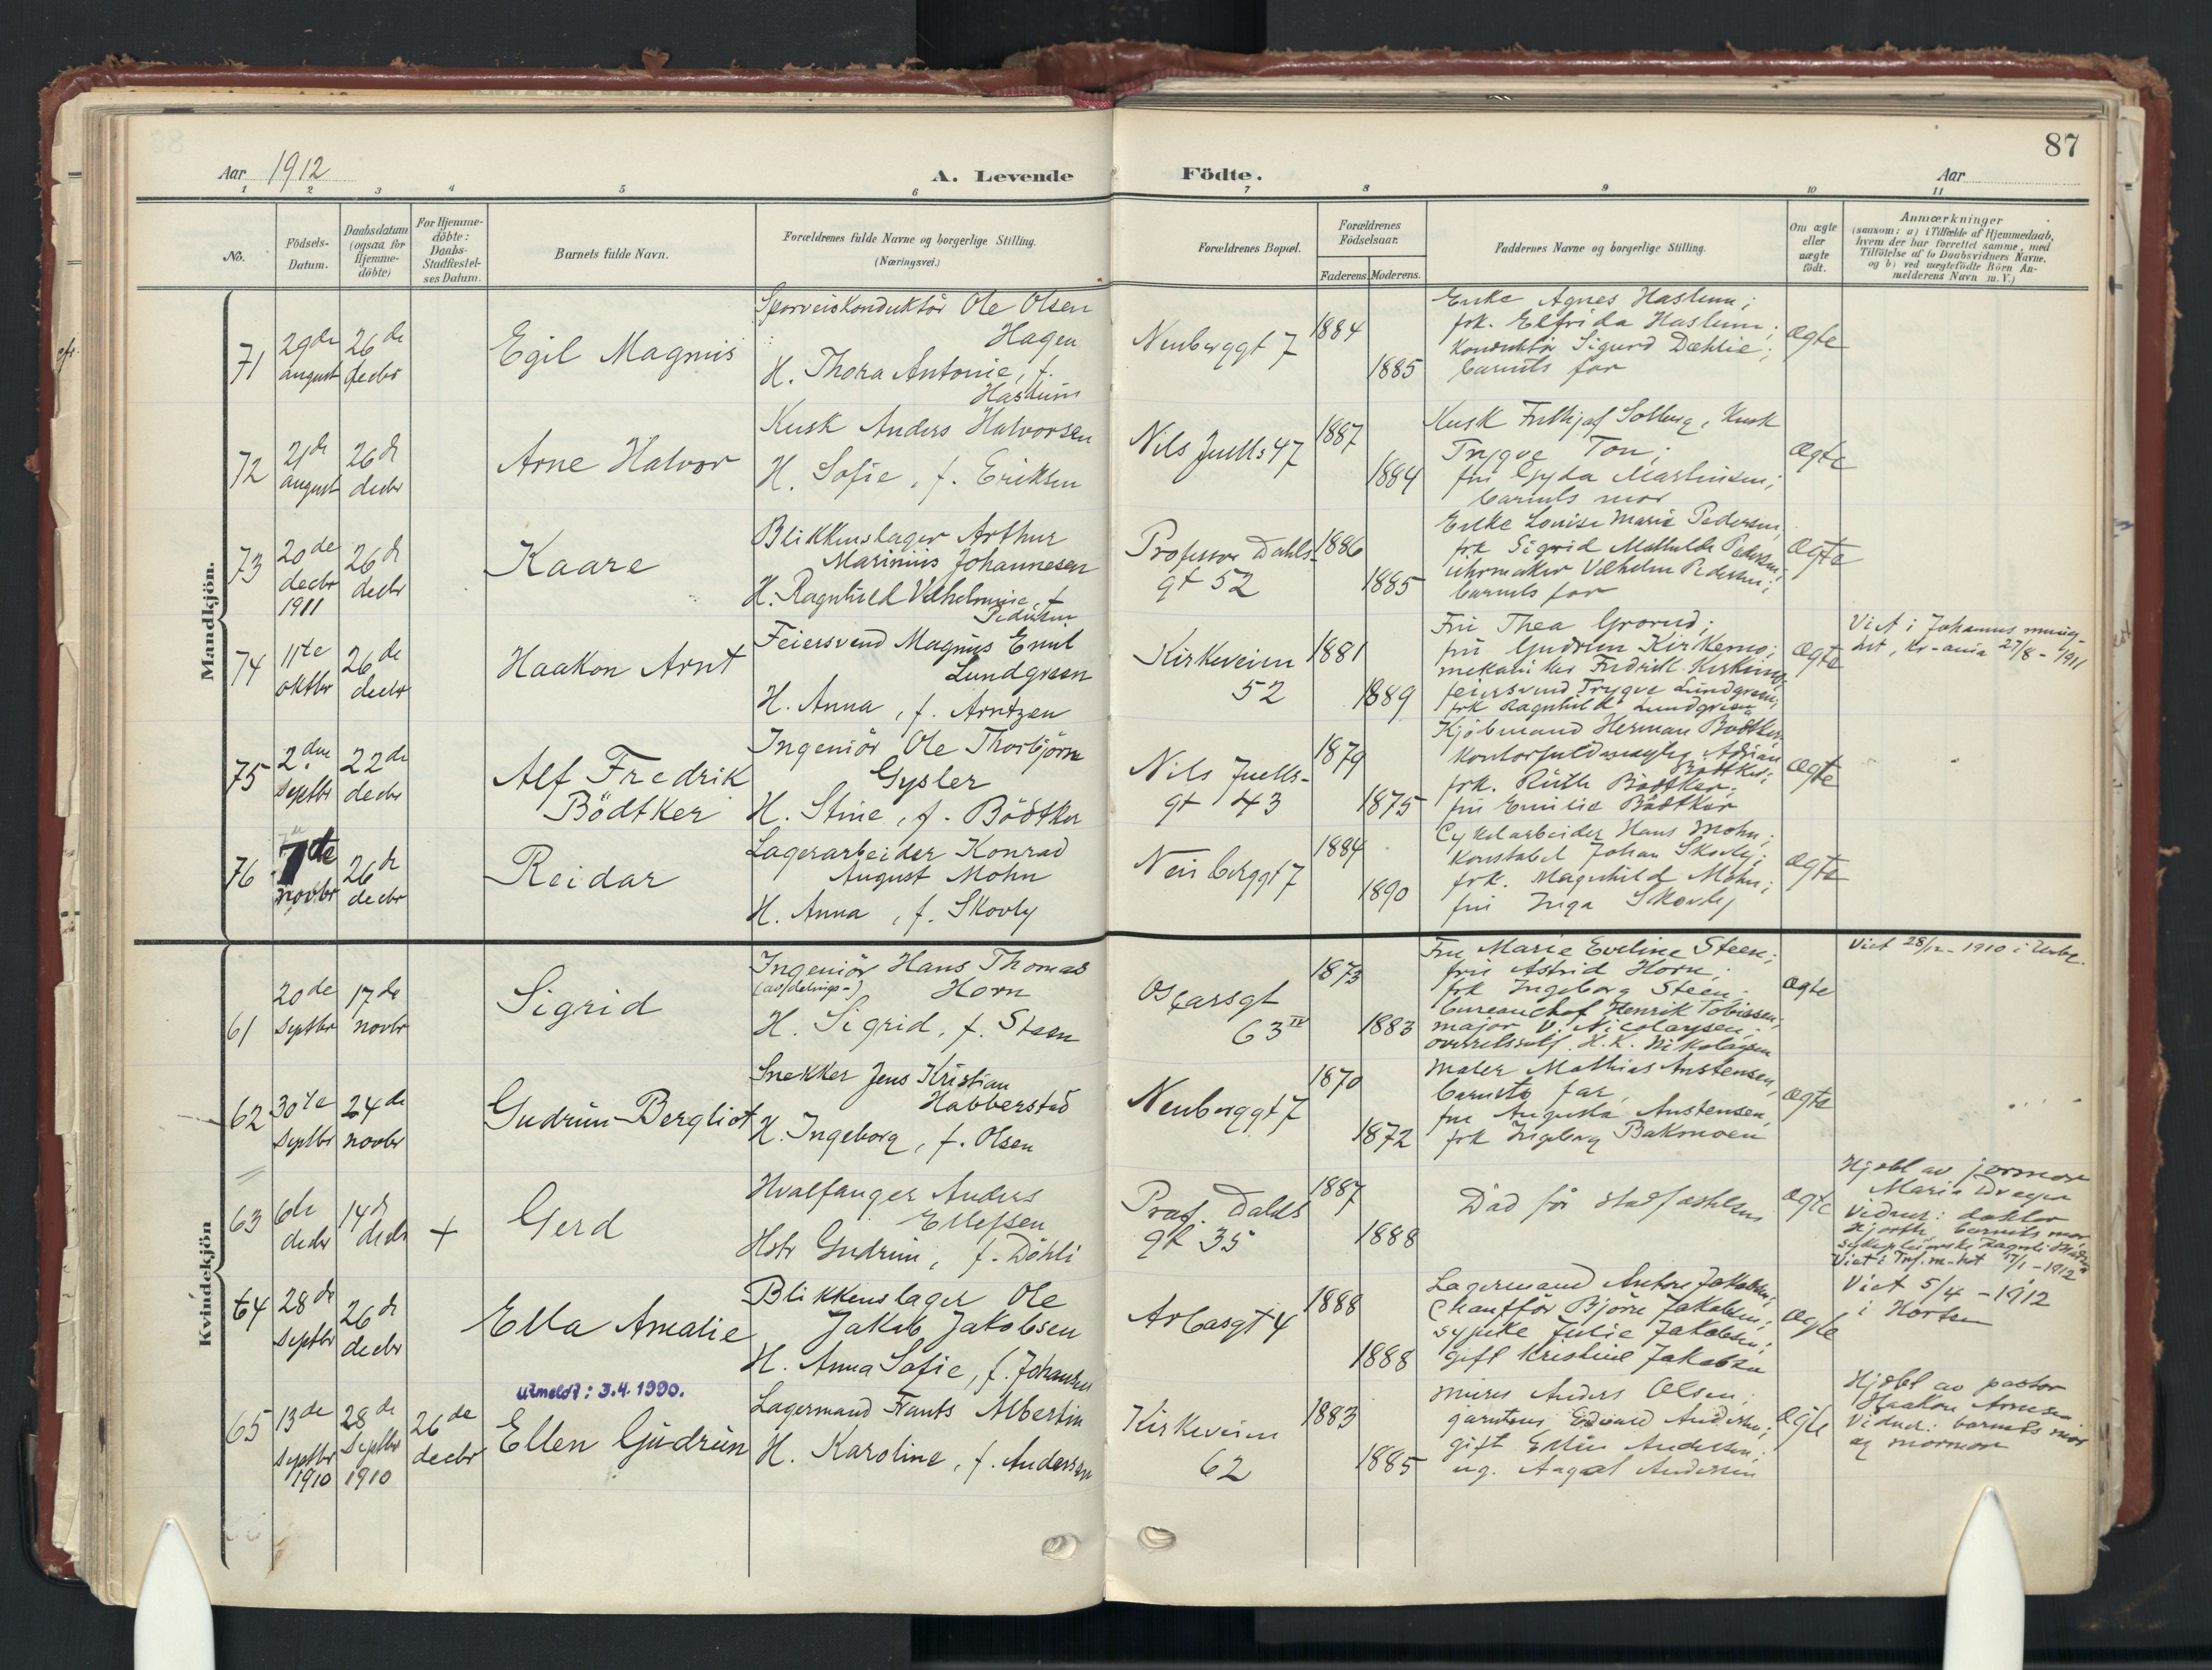 87
Aar 1912
A. Levende
Födte.
Aar
1 2 3 4 5 6 7 8 9 10 11
No.
Födsels-
Datum.
Daabsdatum
(ogsaa for
Hjemme-
döbte)
For Hjemme-
döbte:
Daabs-
Stadfæstel-
ses Datum.
Barnets fulde Navn.
Forældrenes fulde Navne og borgerlige Stilling.
(Næringsvei.)
Forældrenes Bopæl.
Forældrenes
Födselsaar.
Faderens. Moderens.
Faddernes Navne og borgerlige Stilling.
Om ægte
eller
uægte
födt.
Anmærkninger
(saasom: a) i Tilfælde af Hjemmedaab,
hvem der har forrettet samme, med
Tilföielse af to Daabsvidners Navne.
og b) ved uægtefödte Börn An-
melderens Navn m. V.)
Mandkjön.
71
29de
august
26de
decbr
Egil Magnus
Sporveiskonduktör Ole Olsen
Hagen
H. Thora Antonie, f.
Haslum
Neuberggt 7
1884
1885
Enke Agnes Haslum;
frk. Elfrida Haslum;
Konduktör Sigurd Dæhlie;
barnets far
ægte
72
21de
august
26de
decbr
Arne Halvor
Kusk Anders Halvorsen
H. Sofie, f. Eriksen
Nils Juels 47
1887
1884
Kusk Fridtjof Solberg, Kusk
Trygve Ton;
fru Gyda Martinsen;
barnets mor
ægte
73
20de
decbr
1911
26de
decbr
Kaare
Blikkenslager Arthur
Marinius Johannesen
H. Ragnhild Vilhelmine f.
Pedersen
Professor Dahls-
gt 52
1886
1885
Enke Louise Marie Pedersen,
frk Sigrid Mathilde Pedersen;
uhrmaker Vilhelm Pedersen;
barnets far
ægte
74
11te
oktbr
26de
decbr
Haakon Arnt
Feiersvend Magnus Emil
Lundgreen
H. Anna, f. Arntzen
Kirkeveien
52
1881
1889
Fru Thea Grorud;
fru Gudrun Kirkemo;
mekaniker Fredrik Kirkemo,
feiersvend Trygve Lundgreen;
frk Ragnhild Lundgreen
ægte
Viet i Johannes menig-
het, Kr-ania 27/8 - 1911
75
2den
septbr
22de
decbr
Alf Fredrik
Bödtker
Ingeniör Ole Thorbjörn
Gysler
H. Stine, f. Bödtker
Nils Juels-
gt 43
1879
1875
Kjöbmand Herman Bödtker,
kontorfuldmægtig Adrian
Bödtker;
frk. Ruth Bödtker;
fru Emilie Bödtker
ægte
76
7de
novbr
26de
decbr
Reidar
Lagerarbeider Konrad
August Mohn
H. Anna, f. Skovly
Neuberggt 7
1884
1890
Cykelarbeider Hans Mohn;
Konstabel Johan Skovly;
frk. Magnhild Mohn;
fru Inga Skovly
ægte
Kvindekjön
61
20de
septbr
17de
novbr
Sigrid
Ingeniör Hans Thomas
(avdelings-) Horn
H. Sigrid, f. Steen
Oscarsgt
63 IV
1873
1883
Fru Marie Eveline Steen;
fru Astrid Horn;
frk Ingeborg Steen;
bureauchef Henrik Tobiesen;
major V. Nicolaysen;
overretssakf. H.K. Nikolaysen
ægte
Viet 28/12 - 1910 i Urbg.
62
30te
septbr
24de
novbr
Gudrun Bergliot
Snekker Jens Kristian
Habberstad
H. Ingeborg, f. Olsen
Neuberggt 7
1870
1872
Maler Mathias Austensen,
barnets far,
fru Augusta Austensen,
frk Ingeborg Bakmoen
ægte
63
6te
decbr
14de
decbr
+
Gerd
Hvalfanger Anders
Ellefsen
Hstr Gudrun, f. Döhli
Prof. Dahls
gt 35
1887
1888
Död för stadfæstelsen
ægte
Hjdbt av jormor
Maria Dreyer
Vidner: doktor
Hjorth, barnets mor
Viet i Trf. m-het 17/1 - 1912
64
28de
septbr
26de
decbr
Ella Amalie
Blikkenslager Ole
Jakob Jakobsen
H. Anna Sofie, f. Johansen
Arbosgt 4
1888
1888
Lagermand Anton Jakobsen;
Chaufför Bjarne Jakobsen;
sypike Julie Jakobsen;
gift Kristine Jakobsen
ægte
Viet 5/4 - 1912
i Horten
utmeldt: 3.4.1990.
65
13de
septbr
1910
28de
septbr
1910
26de
decbr
Ellen Gudrun
Lagermand Frants Albertin
H. Karoline, f. Andersen
Kirkeveien
62
1883
1885
Murer Anders Olsen;
gartner Edvard Andersen;
gift Ellen Andersen;
ug. Aagot Andersen
ægte
Hjdbt av pastor
Haakon Arnesen
Vidner: barnets mor
og mormor